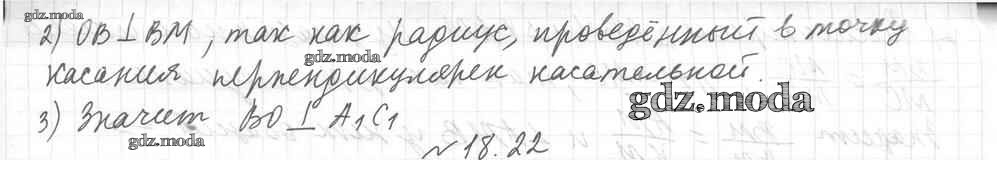 gdz.moda
2) OB⊥BM, так как радиус, проведённый в точку
gdz.moda
касания перпендикулярен касательной.
gdz.moda
3) Значит BO⊥A₁C₁
gdz.moda
№18.22